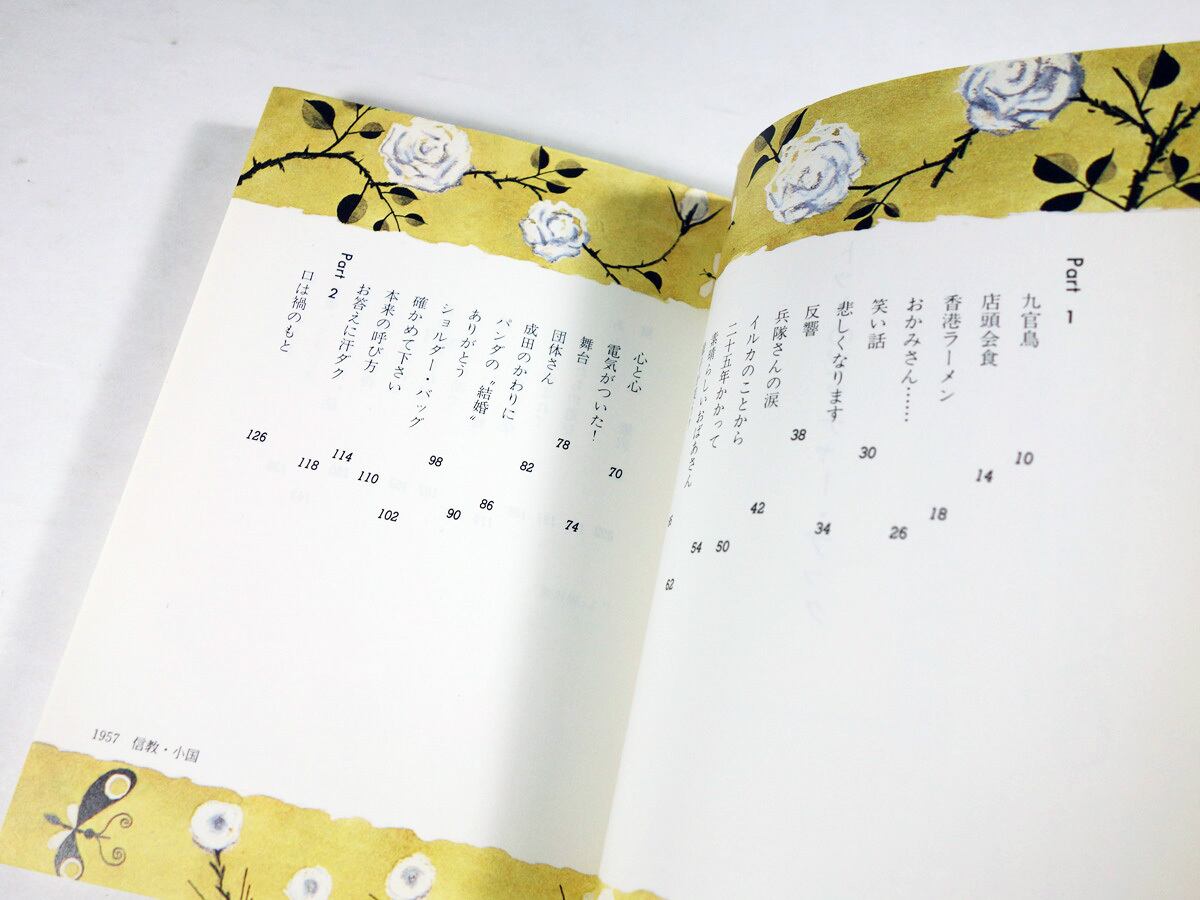 Part 1
九官鳥 10
店頭会食 14
香港ラーメン 18
おかみさん…… 26
笑い話 30
悲しくなります 34
反響 38
兵隊さんの涙 42
イルカのことから 50
二十五年かかって 54
素晴らしいおばあさん 62
心と心 70
電気がついた！ 74
舞台 78
団体さん 82
成田のかわりに 86
パンダの〝結婚〟 90
ありがとう 98
ショルダー・バッグ 102
確かめて下さい 110
本来の呼び方 114
お答えに汗ダク 118
Part 2
口は禍のもと 126
1957 信教・小国